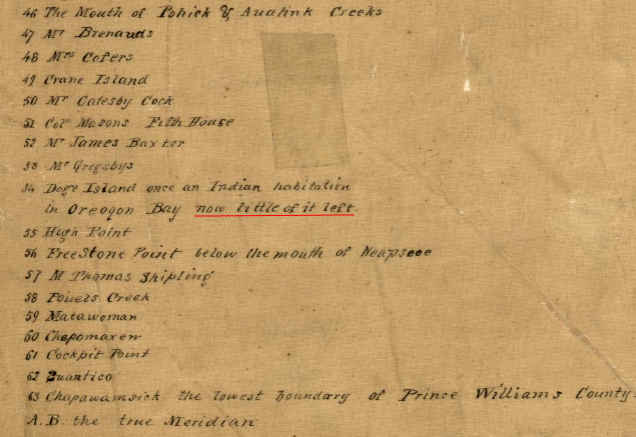 46 The Mouth of Pohick & Aualink Creeks
47 Mr Brenauds
48 Mrs Cofers
49 Crane Island
50 Mr Catesby Cock
51 Colo Masons Fifth House
52 Mr James Baxter
53 Mr Gregsbys
54 Doge Island once an Indian habitation
in Oreoqon Bay now little of it left.
55 High Point
56 FreeStone Point below the mouth of Neapseoe
57 M Thomas Shipling
58 Powels Creek
59 Matawoman
60 Chepomaxen
61 Cockpit Point
62 Quantico
63 Chapawamsick the lowest boundary of Prince Williams County.
A.B. the true Meridian